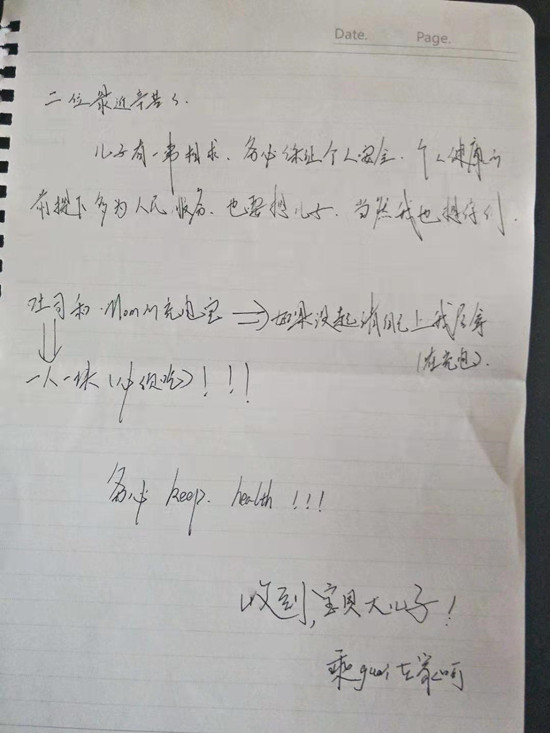 Date. Page.
二位最近辛苦了.
儿子有一事相求. 务必保证个人安全. 个人健康的
前提下多为人民服务. 也要想儿子. 当然我也想你们.
吐司和Mom的充电宝 ⇒ 如果没起请自己上我屋拿
(在充电).
⇓
一人一块(必须吃)!!!
务必 keep. health !!!
收到,宝贝大儿子!
乖guai在家呵